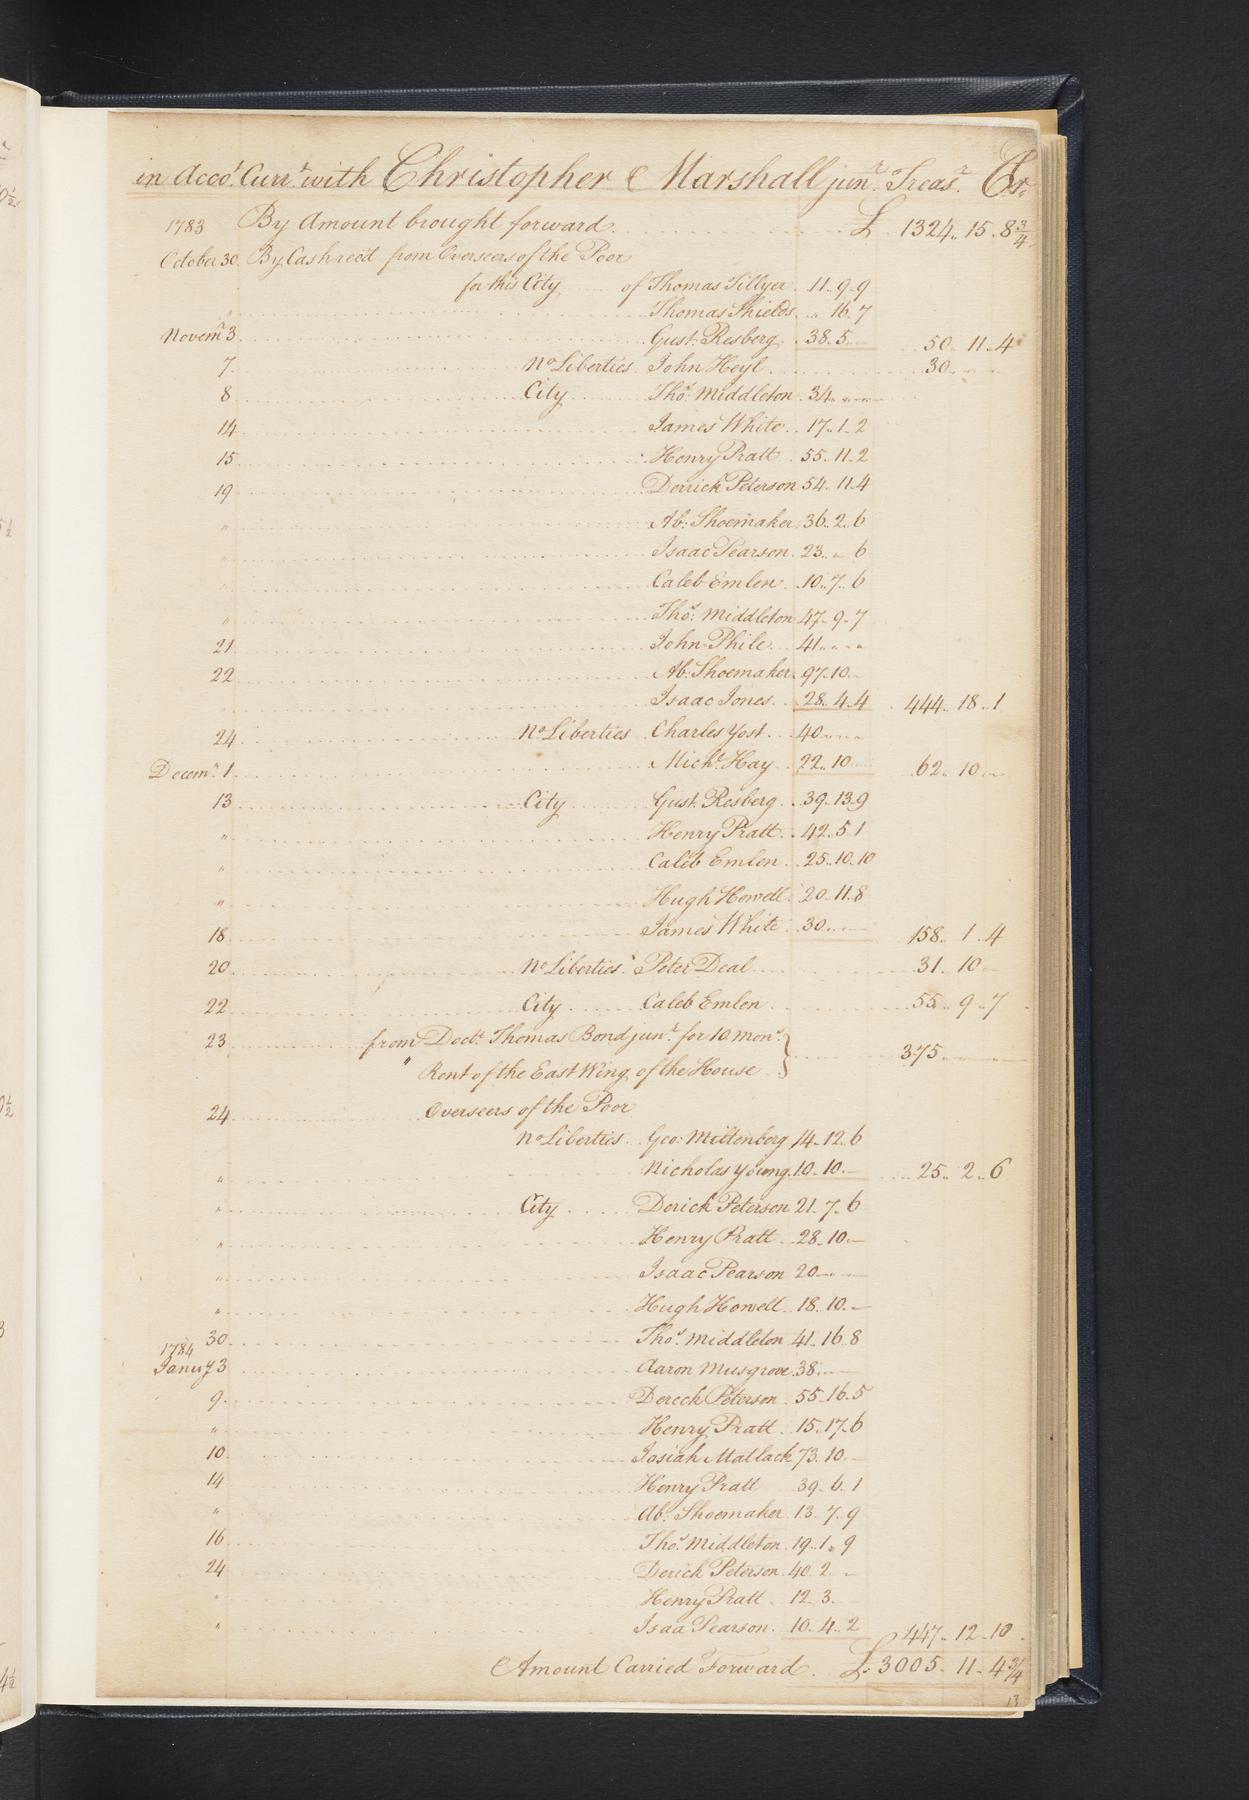 in Acco.t Curr.t with Christopher & Marshall jun.r Treas.r Cr.
1783 By Amount brought forward £ 1324.. 15.. 8 3/4
October 30. By Cash rec'd from Overseers of the Poor
for this City of Thomas Tillyer 11.. 9.. 9
" Thomas Shields " 16.. 7
Novem.r 3 Gust. Resberg 38.. 5.. — 50.. 11.. 4
7. No Liberties John Heyl 30.. " "
8 City Tho.s Middleton 34.. " "
14 James White 17.. 1.. 2
15 Henry Pratt 55.. 11.. 2
19 Derrick Peterson 54.. 11.. 4
" Ab: Shoemaker 36.. 2.. 6
" Isaac Pearson 23.. " 6
" Caleb Emlen 10.. 7.. 6
" Tho.s Middleton 47.. 9.. 7
21 John Phile 41.. " "
22 Ab: Shoemaker 97.. 10.. —
" Isaac Jones 28.. 4.. 4 444.. 18.. 1
24 No Liberties Charles Yost 40.. " "
Decem.r 1 Mich.l Hay 22.. 10.. — 62.. 10.. —
13 City Gust. Resberg 39.. 13.. 9
" Henry Pratt 42.. 5.. 1
" Caleb Emlen 25.. 10.. 10
" Hugh Howell 20.. 11.. 8
18 James White 30.. — 158.. 1.. 4
20 No Liberties Peter Deal 31.. 10 —
22 City Caleb Emlen 55.. 9.. 7
23 from Doct.r Thomas Bond jun.r for 10 mon.s
" Rent of the East Wing of the House } 375.. —
24 Overseers of the Poor
No Liberties Geo: Miltenberg 14.. 12.. 6
" Nicholas Young 10.. 10.. — 25.. 2.. 6
" City Derick Peterson 21.. 7.. 6
" Henry Pratt 28.. 10.. —
" Isaac Pearson 20.. —
" Hugh Howell 18.. 10.. —
30 Tho.s Middleton 41.. 16.. 8
1784
Janu.y 3 Aaron Musgrove 38.. —
9 Dereck Peterson 55.. 16.. 5
" Henry Pratt 15.. 17.. 6
10 Josiah Matlack 73.. 10.. —
14 Henry Pratt 39.. 6.. 1
" Ab: Shoemaker 13.. 7.. 9
16 Tho.s Middleton 19.. 1.. 9
24 Derick Peterson 40.. 2.. —
" Henry Pratt 12.. 3.. —
" Isaa Pearson 10.. 4.. 2 447.. 12.. 10
Amount Carried Forward £ 3005.. 11.. 4 3/4
13